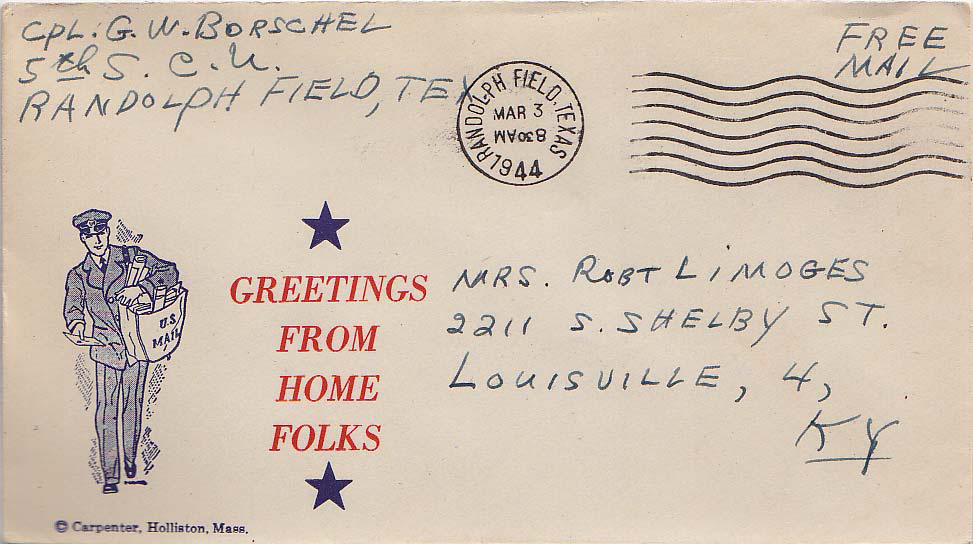 CPL. G. W. BORSCHEL
5th S. C. U.
RANDOLPH FIELD, TEX
FREE
MAIL
RANDOLPH FIELD, TEXAS
MAR 3
830AM
1944
U.S.
MAIL
GREETINGS
FROM
HOME
FOLKS
MRS. ROBT LIMOGES
2211 S. SHELBY ST.
LOUISVILLE, 4,
KY
© Carpenter, Holliston, Mass.